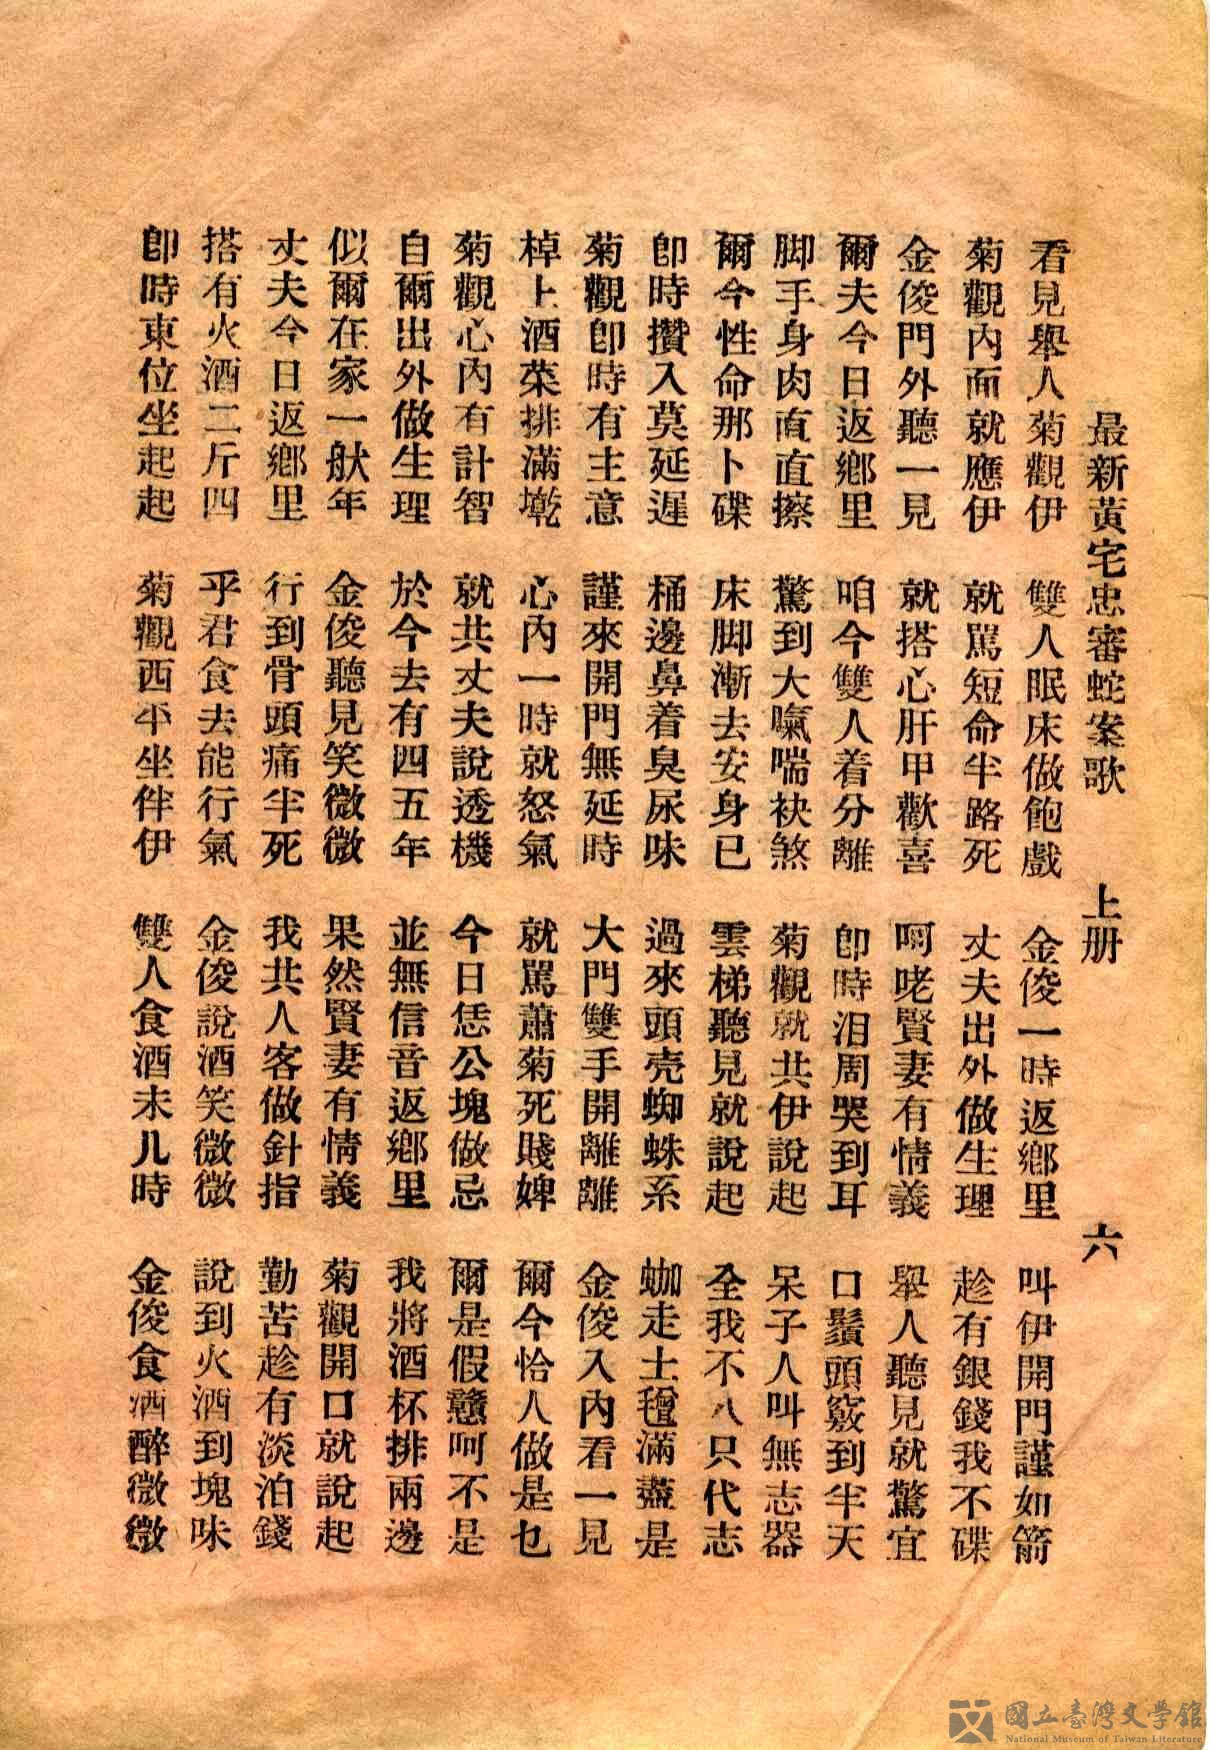 最新黃宅忠審蛇案歌 上册 六
看見舉人菊觀伊 雙人眠床做飽戲 金俊一時返鄉里 叫伊開門謹如箭
菊觀內面就應伊 就罵短命半路死 丈夫出外做生理 趁有銀錢我不碟
金俊門外聽一見 就搭心肝甲歡喜 呵咾賢妻有情義 舉人聽見就驚宜
爾夫今日返鄉里 咱今雙人着分離 卽時泪周哭到耳 口鬚頭竅到半天
脚手身肉直直擦 驚到大氣喘袂煞 菊觀就共伊說起 呆子人叫無志器
爾今性命那卜碟 床脚漸去安身已 雲梯聽見就說起 全我不八只代志
卽時攢入莫延遲 桶邊鼻着臭尿味 過來頭壳蜘蛛系 蚋走土氊滿盡是
菊觀卽時有主意 謹來開門無延時 大門雙手開離離 金俊入內看一見
棹上酒菜排滿墘 心內一時就怒氣 就罵蕭菊死賤婢 爾今恰人做是乜
菊觀心內有計智 就共丈夫說透機 今日恁公塊做忌 爾是假戇呵不是
自爾出外做生理 於今去有四五年 並無信音返鄉里 我將酒杯排兩邊
似爾在家一般年 金俊聽見笑微微 果然賢妻有情義 菊觀開口就說起
丈夫今日返鄉里 行到骨頭痛半死 我共人客做針指 勤苦趁有淡泊錢
搭有火酒二斤四 乎君食去能行氣 金俊說酒笑微微 說到火酒到塊味
卽時東位坐起起 菊觀西平坐伴伊 雙人食酒未几時 金俊食酒醉微微
國立臺灣文學館
National Museum of Taiwan Literature